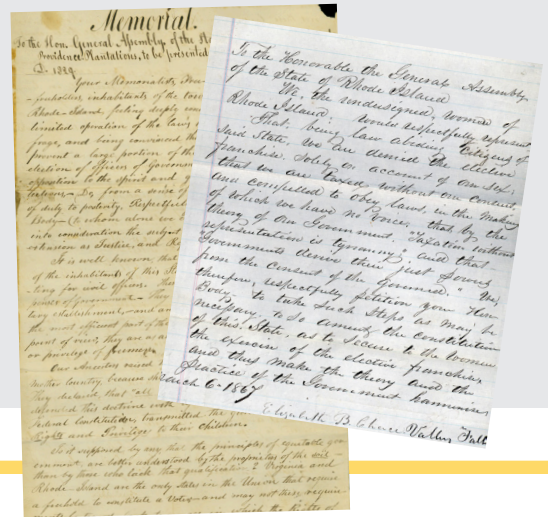 Memorial.
To the Hon. General Assembly, of the
Providence Plantations, to be presented
D. 1829
Your Memorialists,
freeholders, inhabitants of the
Rhode-Island, feeling deeply
limited operation of the laws
and being convinced
prevent a large portion of the
election of Officers of Government
opposition to the spirit and
from a sense of
of duty to posterity, Respectfully
Body
into consideration the subject
as Justice, and
It is well known, that
of the inhabitants of this
for civil officers.
of Government
establishment, and
the most efficient part of the
point of view, they are as
or privilege of freemen
Our Ancestors
Mother Country, because
They declared, that "all
this doctrine
Federal Constitution, transmitted the
Rights and Privileges to their Children.
Is it supposed by any that the principles of equitable
are better understood by the proprietors of the soil
than by those who lack that qualification? Virginia and
Rhode Island are the only states in the Union that require
a freehold to constitute a Voter and may not these
which the
To the Honorable the General Assembly
of the State of Rhode Island
We, the undersigned, women of
Rhode Island, would respectfully represent
That, being law abiding citizens of
said State, we are denied the elective
franchise, solely on account of our sex;
that we are taxed without our consent,
and compelled to obey laws, in the making
of which we have no voice; that by the
theory of our Government, "Taxation without
representation is tyranny", and that
"Governments derive their just powers
from the consent of the governed." We,
therefore, respectfully petition your Hon
Body, to take such steps as may be
necessary, to so amend the constitution
of this State, as to secure to the women
the exercise of the elective franchise
and thus make the theory and the
practice of the Government harmonious
March 6 - 1867
Elizabeth B. Chace